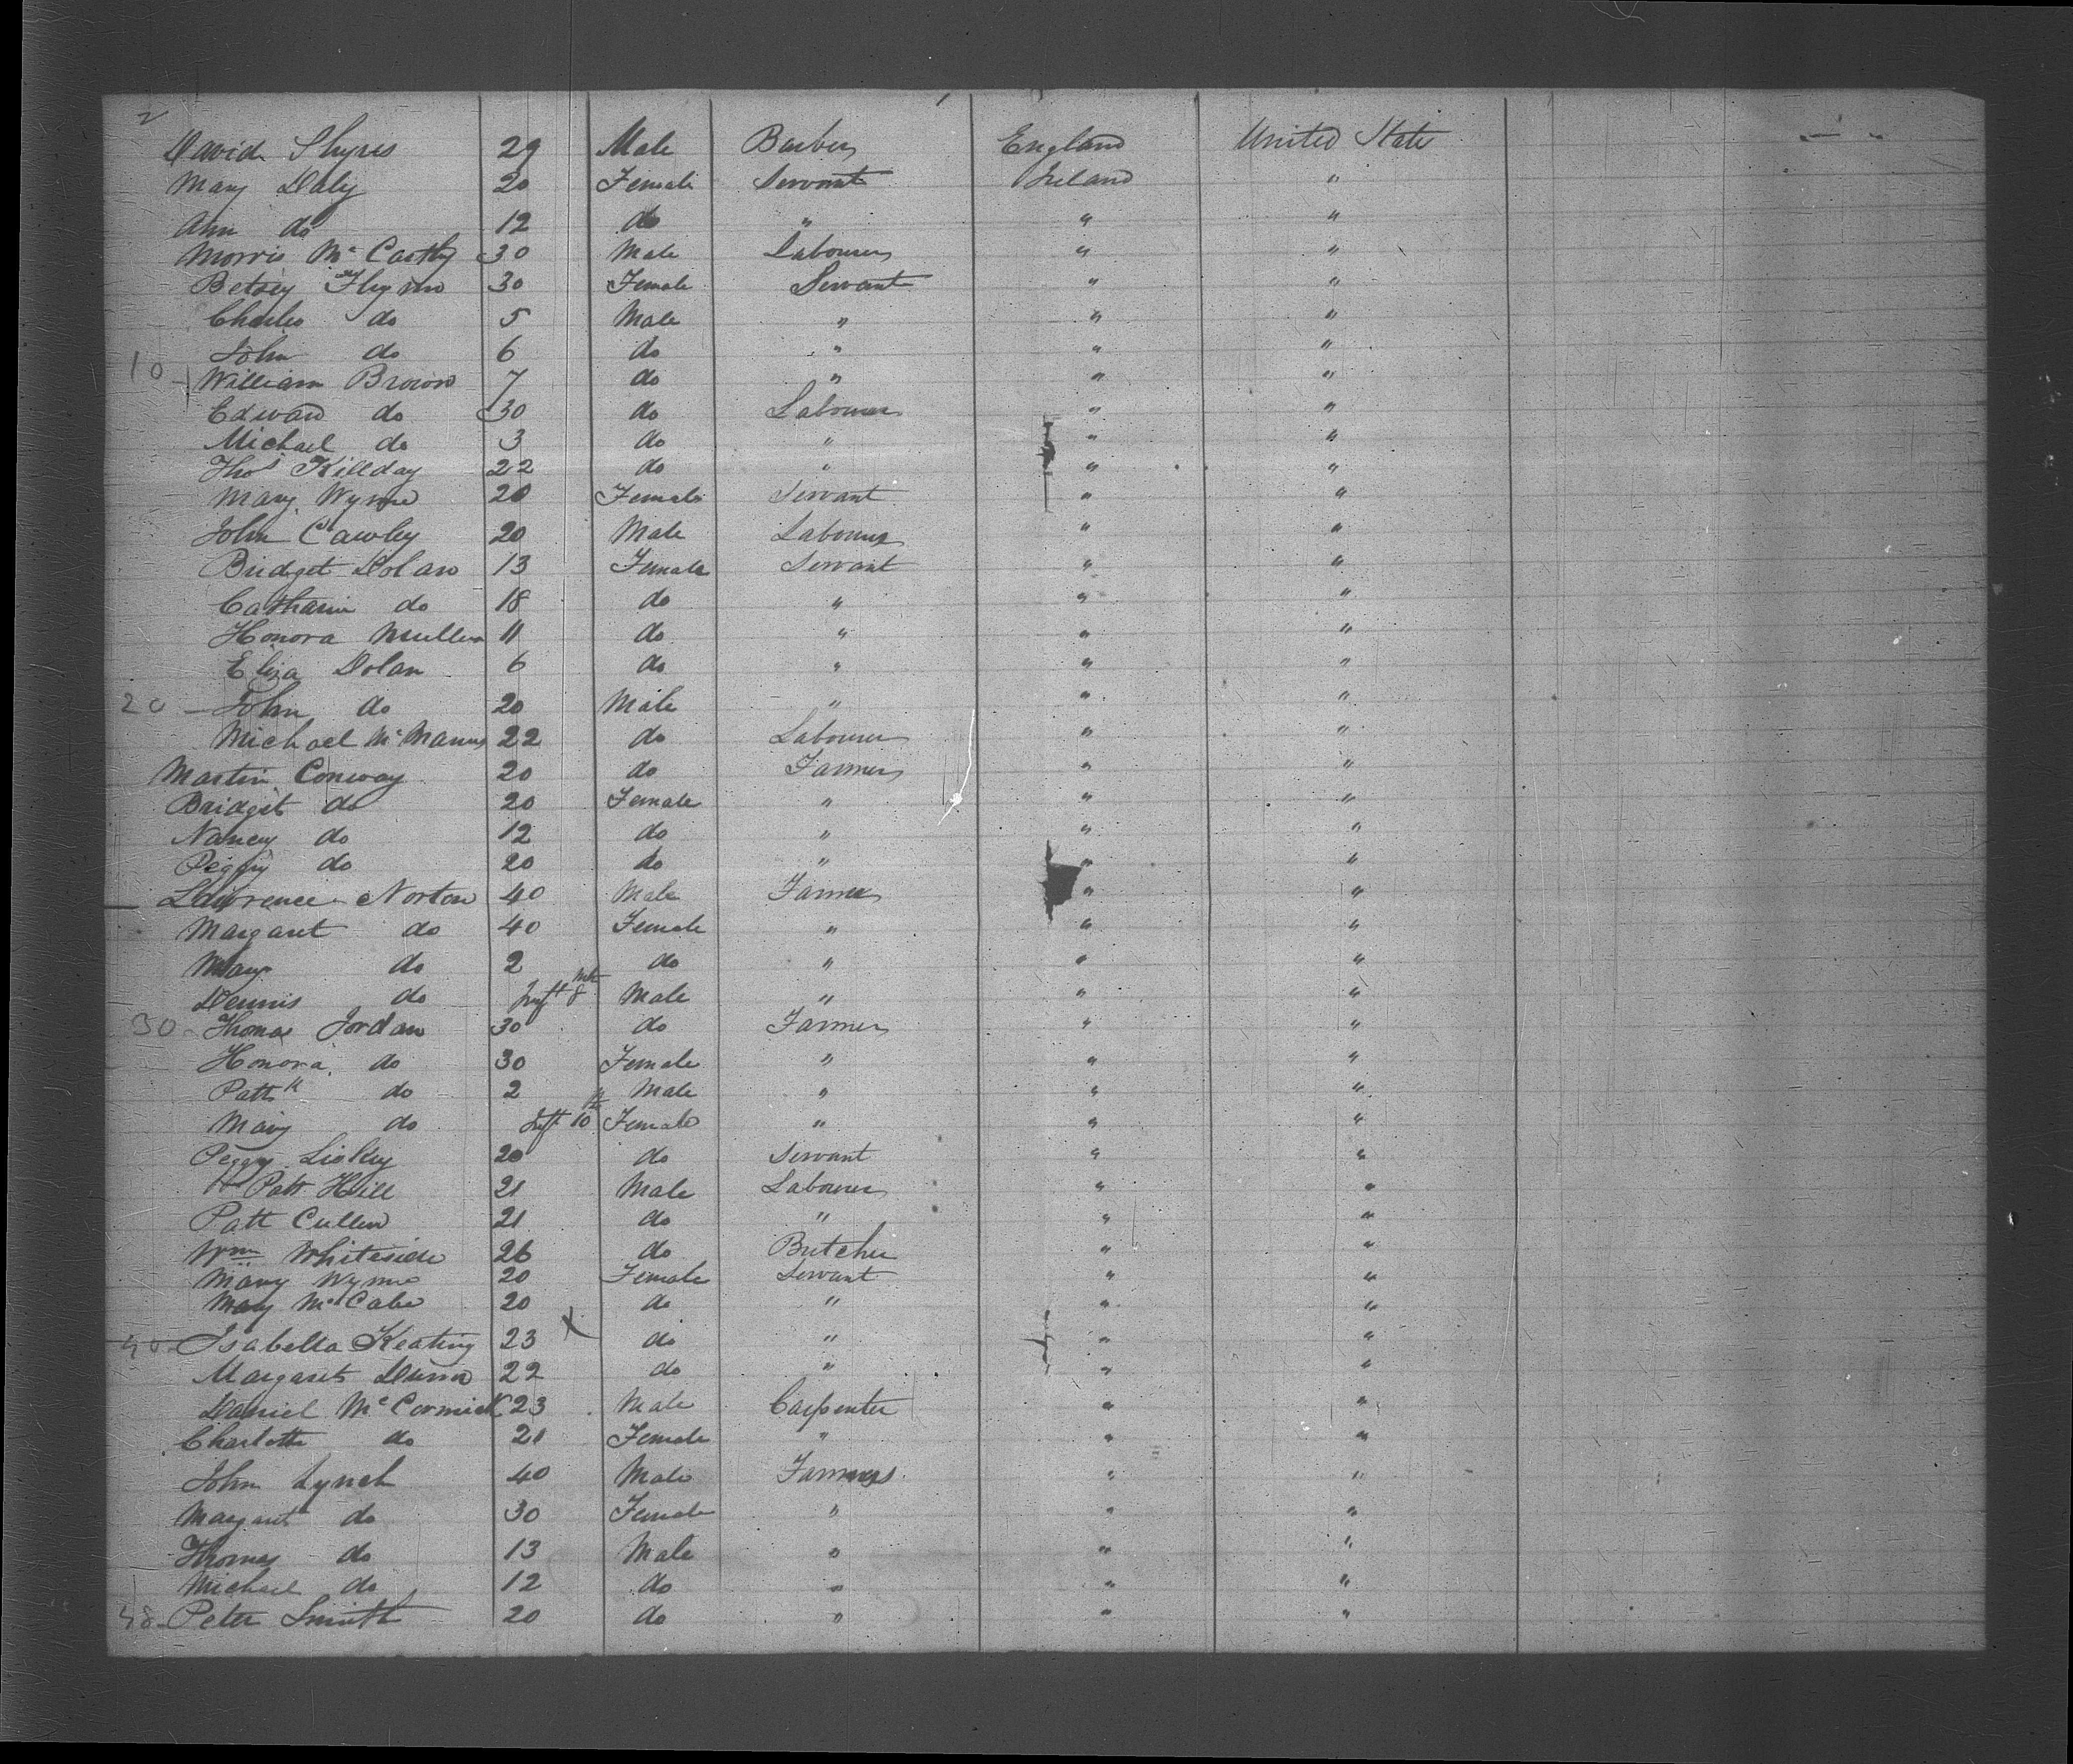 2
David Shyres 29 Male Barber England United State
Mary Daly 20 Female Servant Ireland "
Ann do 12 do " " "
Morris McCarthy 30 Male Labourer " "
Betsey Flynn 30 Female Servant " "
Charles do 5 Male " " "
John do 6 do " " "
10 - William Brown 7 do " " "
Edward do 30 do Labourer " "
Michael do 3 do " " "
Thos Killday 22 do " " "
Mary Wynne 20 Female Servant " "
John Cawley 20 Male Labourer " "
Bridget Dolan 13 Female Servant " "
Catharine do 18 do " " "
Honora Mullen 11 do " " "
Eliza Dolan 6 do " " "
20 - John do 20 Male " " "
Michael McManus 22 do Labourer " "
Martin Conway 20 do Farmer " "
Bridget do 20 Female " " "
Nancy do 12 do " " "
Peggy do 20 do " " "
Lawrence Norton 40 Male Farmer " "
Margaret do 40 Female " " "
Mary do 2 do " " "
Dennis do Inft 8 Mts Male " " "
30 - Thomas Jordan 30 do Farmer " "
Honora do 30 Female " " "
Pattk do 2 Male " " "
Mary do Inft 10 Female " " "
Peggy 20 do Servant " "
Patt Hill 21 Male Labourer " "
Patt Cullen 21 do " " "
Wm Whiteside 26 do Butcher " "
Mary Wynne 20 Female Servant " "
Mary McCabe 20 do " " "
40 - Isabella Keating 23 X do " " "
Margaret Dunn 22 do " " "
Daniel McCormick 23 Male Carpenter " "
Charlotte do 21 Female " " "
John Lynch 40 Male Farmers " "
Margaret do 30 Female " " "
Thomas do 13 Male " " "
Michael do 12 do " " "
48 - Peter Smith 20 do " " "